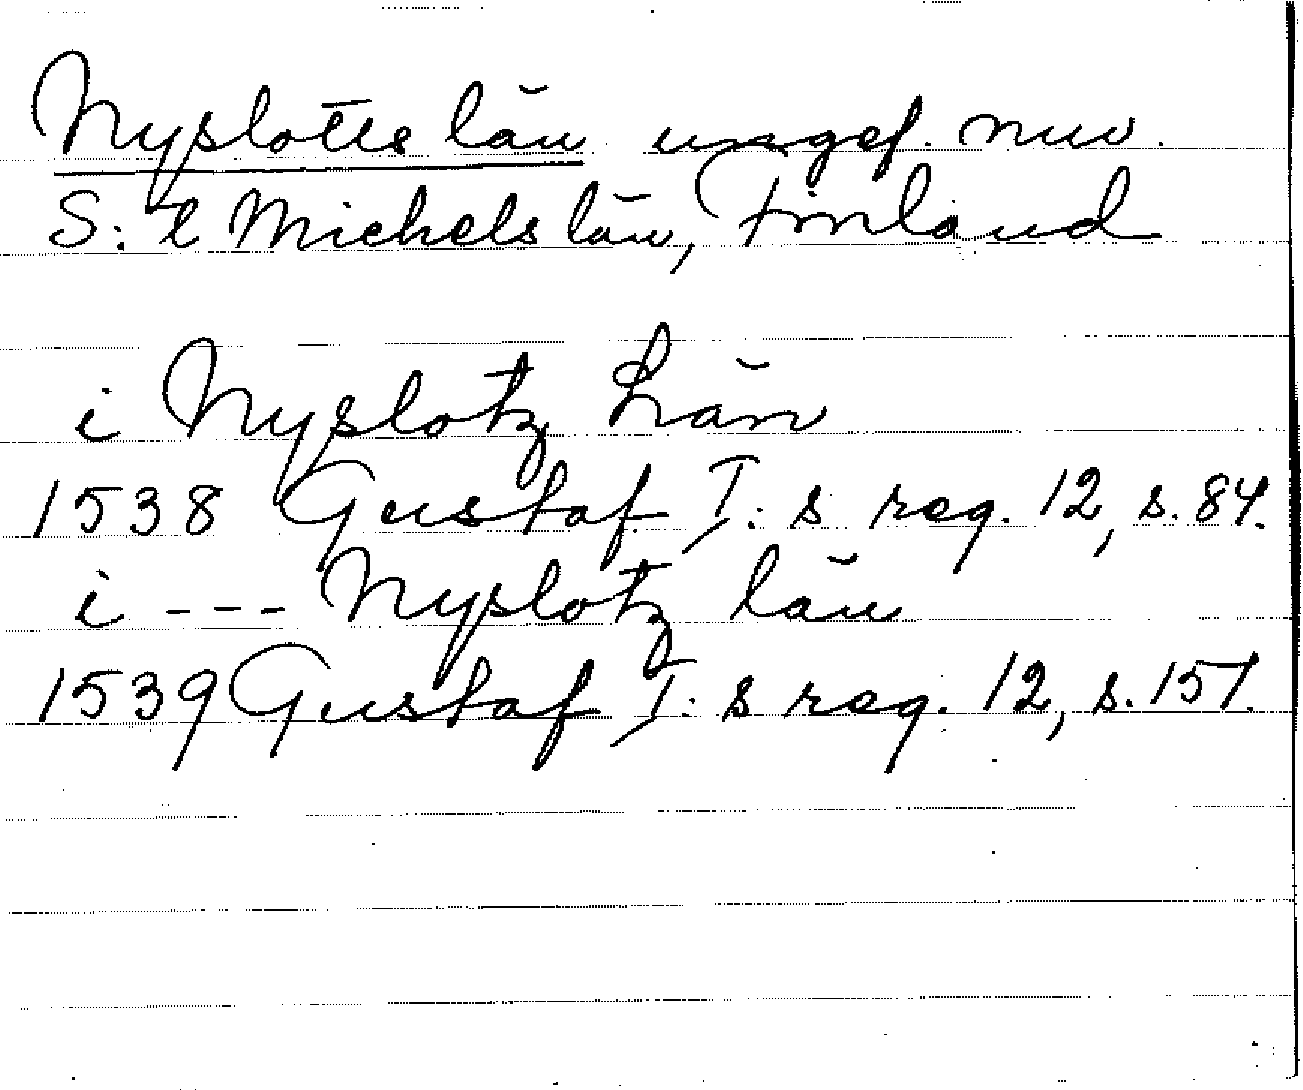 Nyslotts län ungef. nuv.
S:t Michels län, Finland
i Nyslotz Län
1538 Gustaf I:s reg. 12, s. 84.
i --- Nyslotz län
1539 Gustaf I:s reg. 12, s. 157.